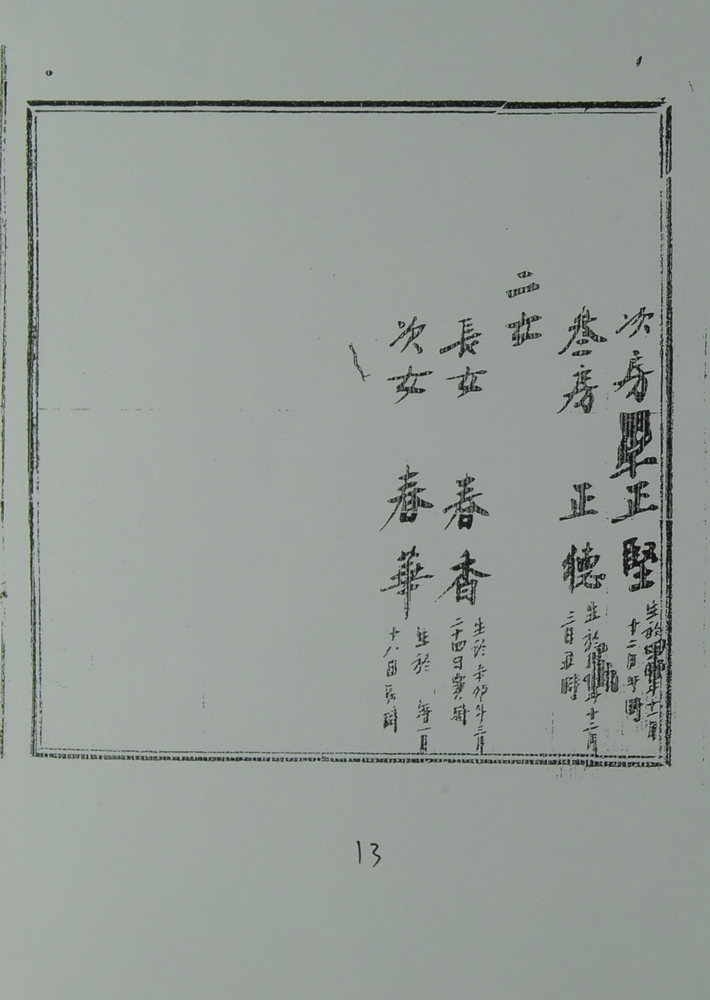 次房 正堅
生於年十一月
十二日午時
叁房 正德
生於年十二月
三日丑時
二女
長女 春香
生於辛卯年三月
二十四日寅時
次女 春華
生於 年一月
十八日辰時
13